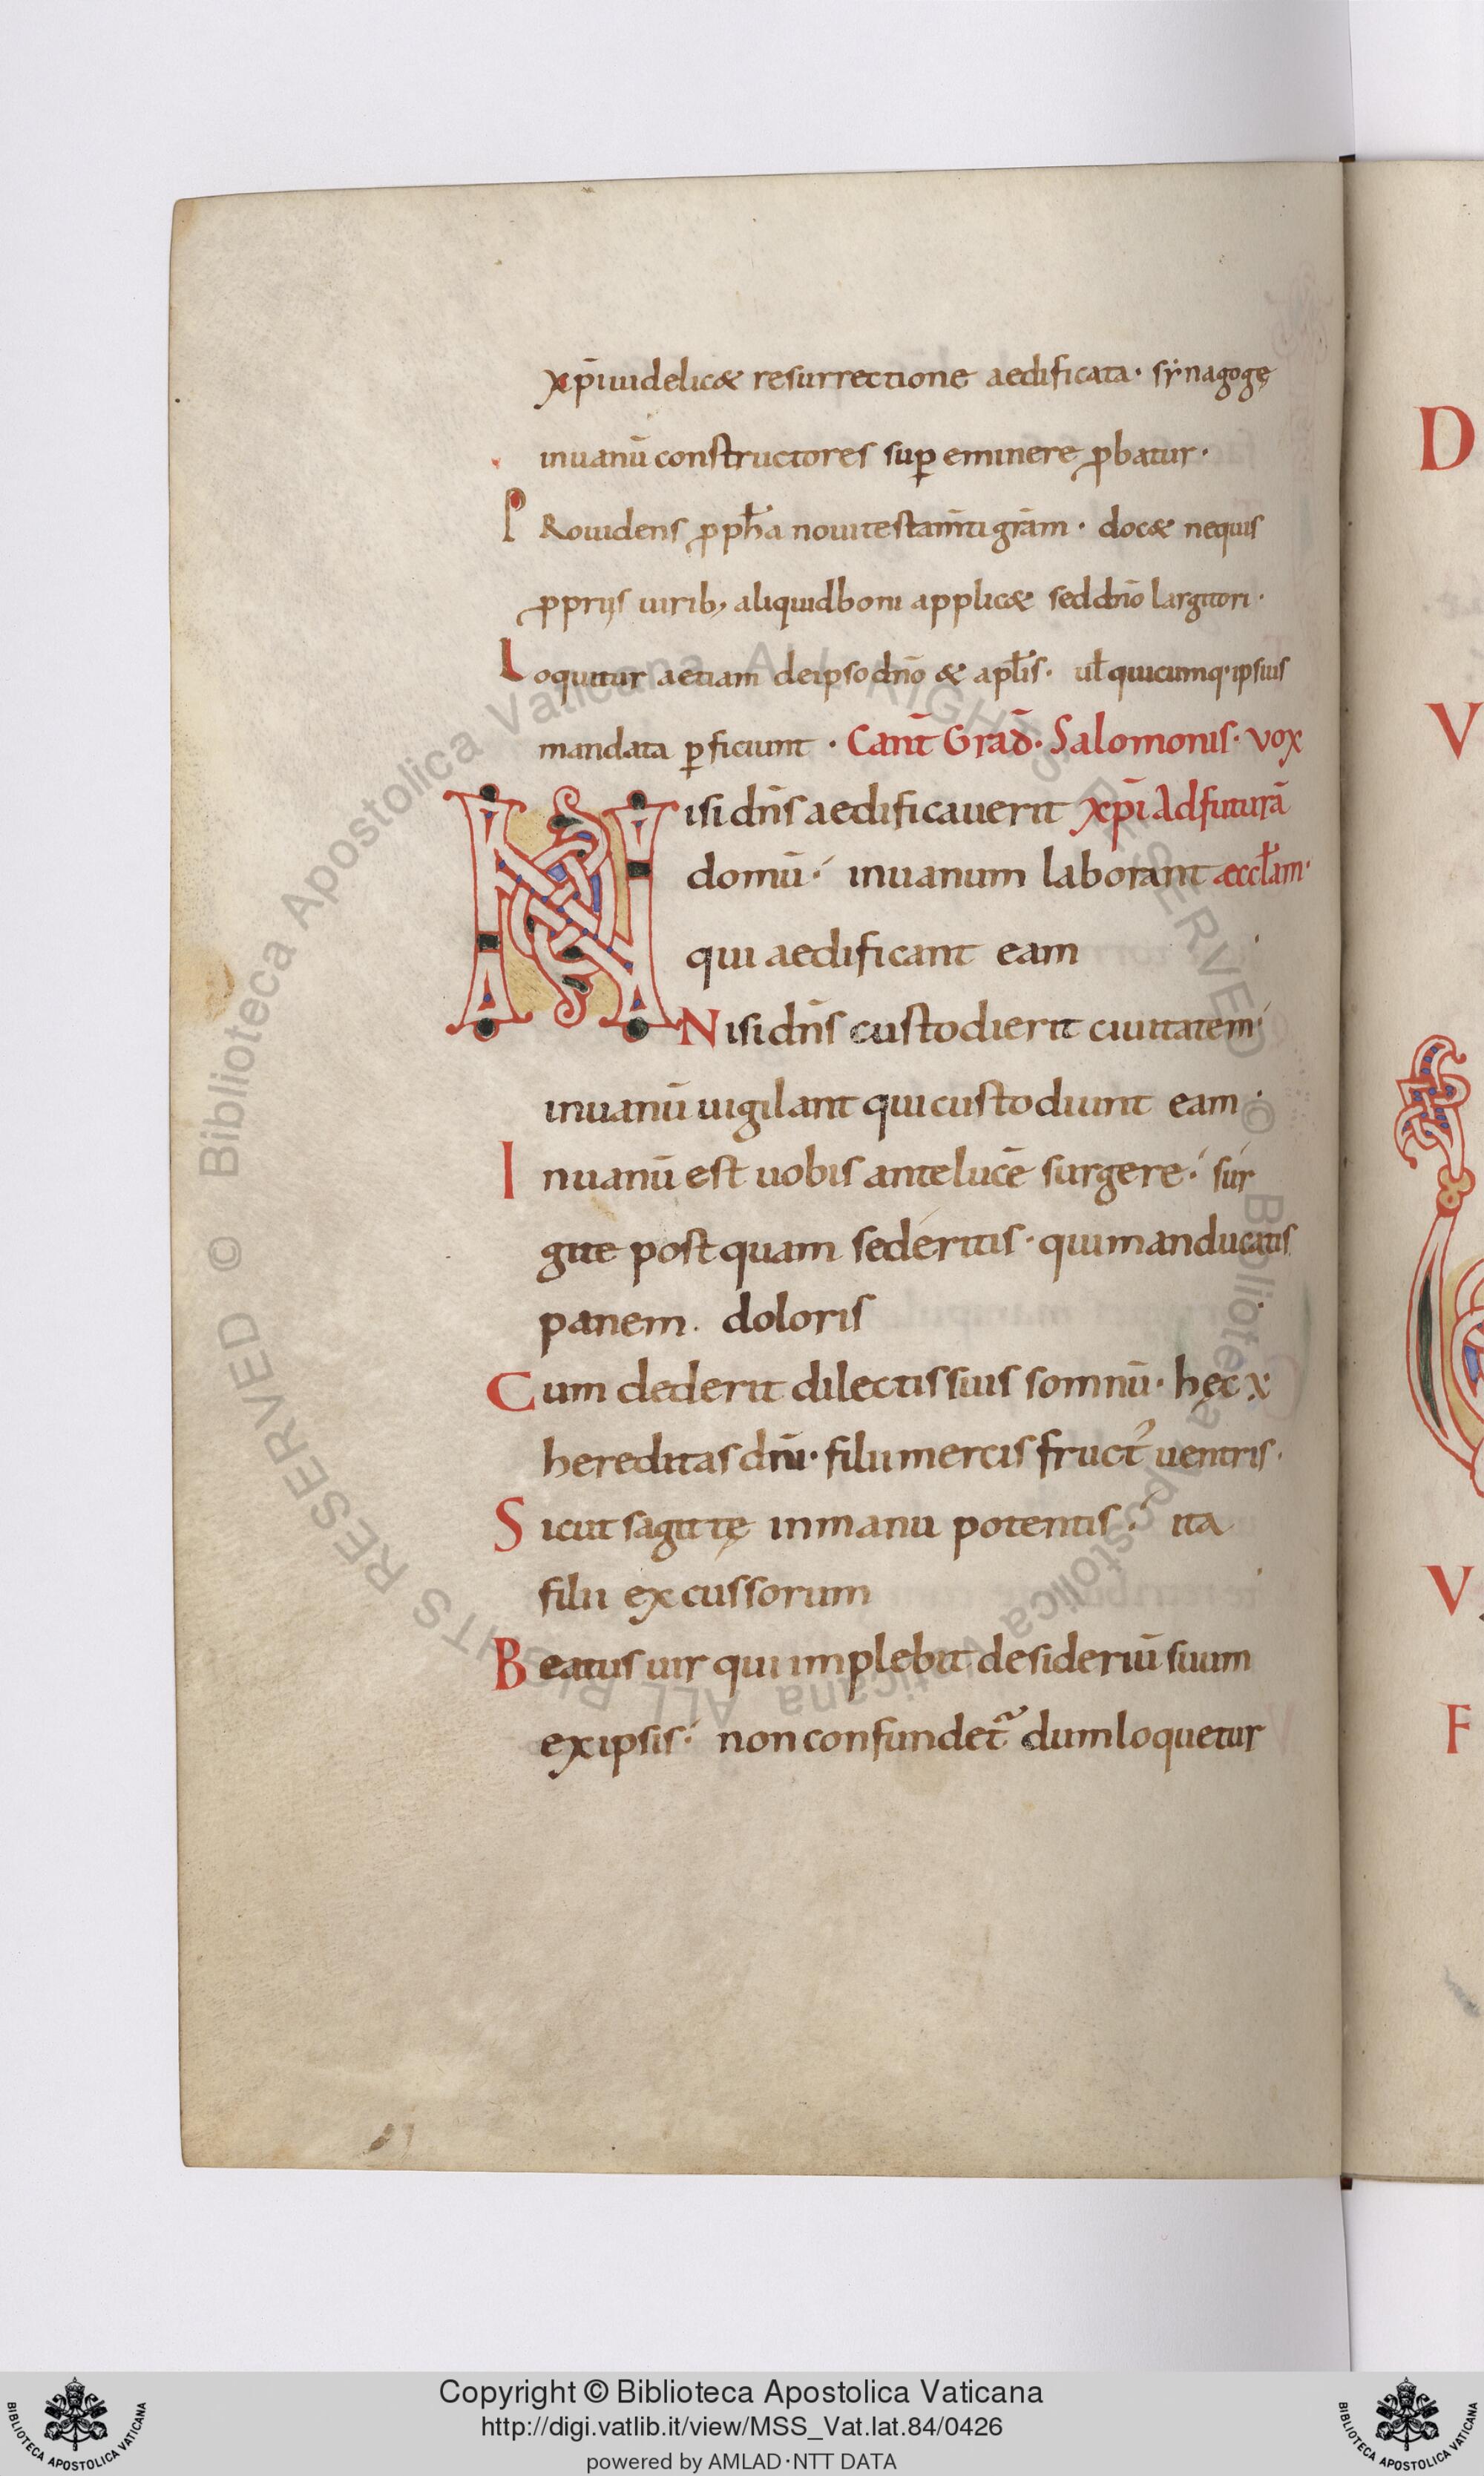 xp̄i uidelic& resurrectione aedificata · sẏnagogę
inuanū constructores sup̱ eminere ꝓbatur ·
PRouidens ꝓph̄a nouitestam̄ti grām · doc& nequis
ꝓprijs uirib; aliquid boni applic& sed dn̄o largitori ·
Loquitur aetiam deipso dn̄o & apl̄is · ul̄ quicumq· ipsius
mandata ꝑficiunt · Cant̄ Grad̄ · Salomonis · vox
Nisi dn̄s aedificauerit xp̄i Ad futurā
domū · inuanum laborant æccl̄am ·
qui aedificant eam
Nisi dn̄s custodierit ciuitatem
inuanū uigilant qui custodiunt eam ·
Inuanū est uobis ante lucē surgere · sur
gite post quam sederitis · qui manducatis
panem . doloris
Cum dederit dilectis suis somnū · hęc
hereditas dn̄i · filii mercis fruct᾿ uentris ·
Sicut sagittę inmanu potentis · ita
filii excussorum
Beatus uir qui implebit desideriū suum
exipsis · non confundet᷑ dum loquetur
D
V
V
F
© Biblioteca Apostolica Vaticana ALL RIGHTS RESERVED © Biblioteca Apostolica Vaticana ALL RIGHTS RESERVED
BIBLIOTECA APOSTOLICA VATICANA
Copyright © Biblioteca Apostolica Vaticana
http://digi.vatlib.it/view/MSS_Vat.lat.84/0426
powered by AMLAD·NTT DATA
BIBLIOTECA APOSTOLICA VATICANA